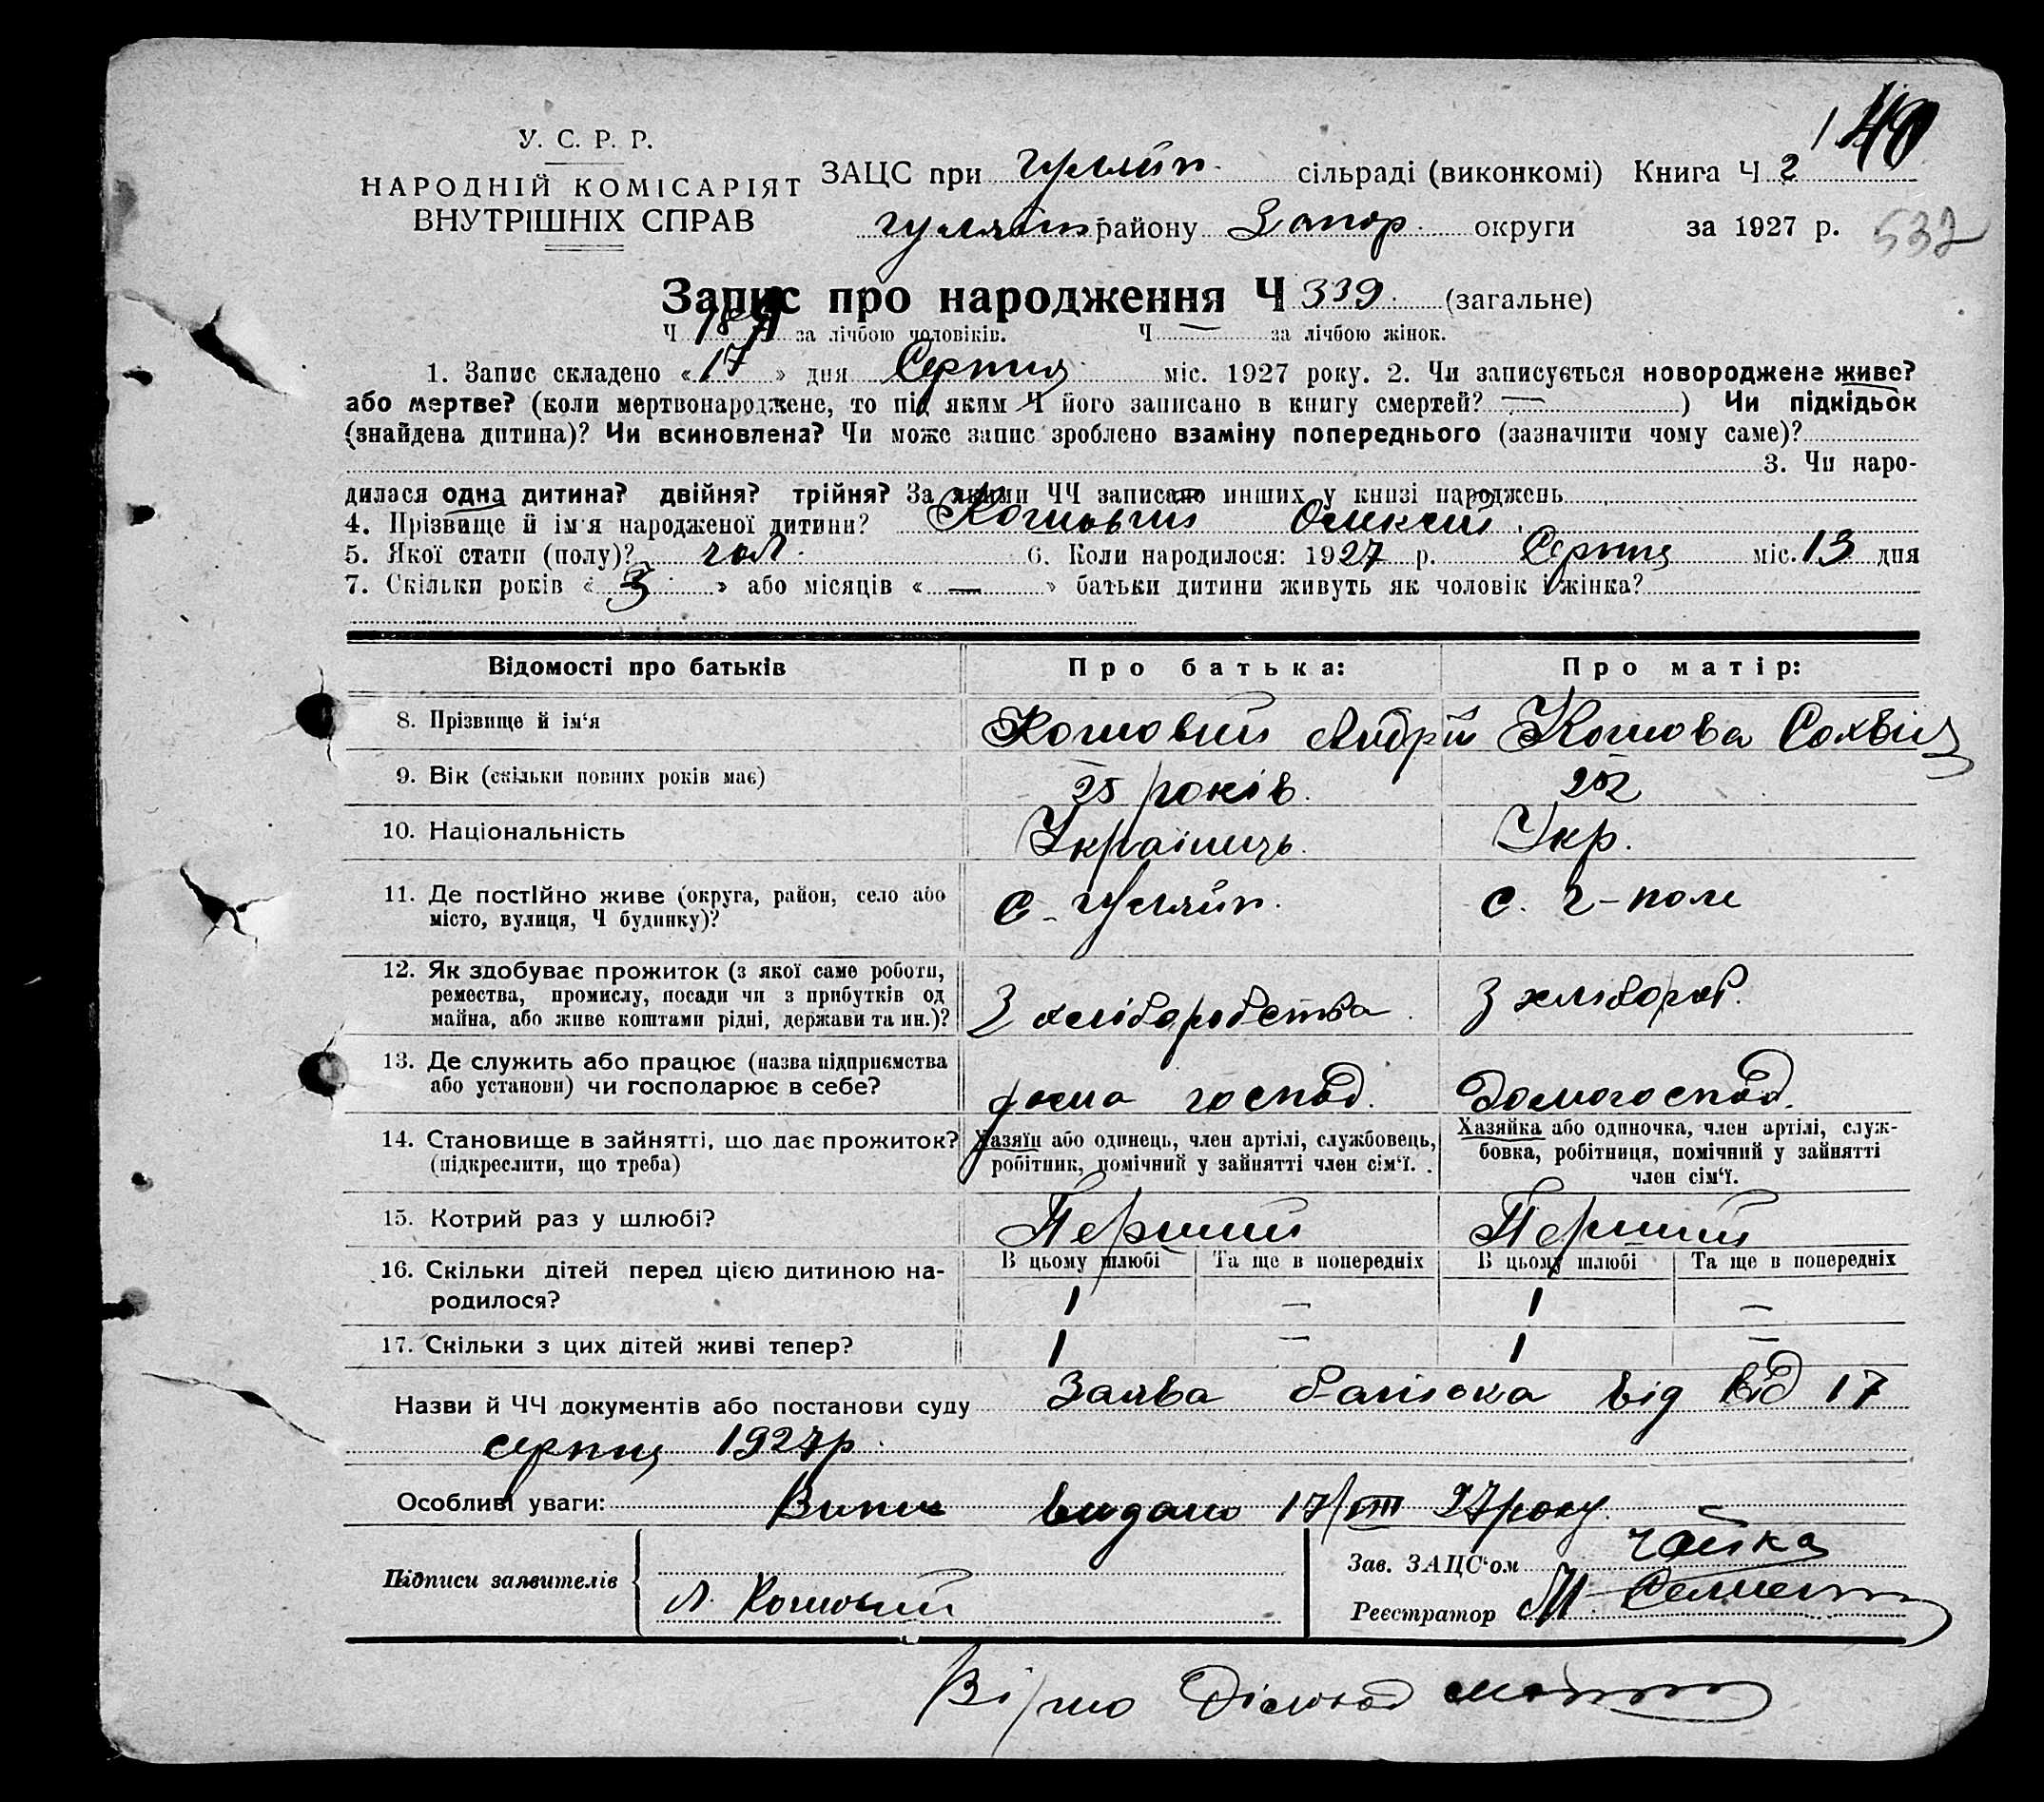 140
У. С. Р. Р.
НАРОДНІЙ КОМІСАРІЯТ
ВНУТРІШНІХ СПРАВ
ЗАЦС при Гуляйп. сільраді (виконкомі) Книга Ч 2
Гуляйп. району Запор. округи за 1927 р.
532
Запис про народження Ч 339. (загальне)
Ч 187 за лічбою чоловіків. Ч — за лічбою жінок.
1. Запис складено «17» дня Серпня міс. 1927 року. 2. Чи записується новороджене живе?
або мертве? (коли мертвонароджене, то під яким Ч його записано в книгу смертей? —) Чи підкідьок
(знайдена дитина)? Чи всиновлена? Чи може запис зроблено взаміну попереднього (зазначити чому саме)?
3. Чи наро-
дилася одна дитина? двійня? трійня? За якими ЧЧ записано инших у книзі народжень
4. Прізвище й ім'я народженої дитини? Котовий Олексій.
5. Якої стати (полу)? чол. 6. Коли народилося: 1927 р. Серпня міс. 13 дня
7. Скільки років «3» або місяців «—» батьки дитини живуть як чоловік і жінка?
Відомості про батьків Про батька: Про матір:
8. Прізвище й ім'я Котовий Андрій Котова Сохвія
9. Вік (скільки повних років має) 25 років.
10. Національність Українець. Укр.
11. Де постійно живе (округа, район, село або
місто, вулиця, Ч будинку)? С. Гуляйп. с. Г-поле
12. Як здобуває прожиток (з якої саме роботи,
ремества, промислу, посади чи з прибутків од
майна, або живе коштами рідні, держави та ин.)? З хліборобства З хлібороб.
13. Де служить або працює (назва підприємства
або установи) чи господарює в себе? госпód. Домогоспод.
14. Становище в зайнятті, що дає прожиток?
(підкреслити, що треба)
Хазяїн або одинець, член артілі, службовець,
робітник, помічний у зайнятті член сім'ї.
Хазяйка або одиночка, член артілі, служ-
бовка, робітниця, помічний у зайнятті
член сім'ї.
15. Котрий раз у шлюбі? Перший Перший
В цьому шлюбі Та ще в попередніх В цьому шлюбі Та ще в попередніх
16. Скільки дітей перед цією дитиною на-
родилося? 1 — 1 —
17. Скільки з цих дітей живі тепер? 1 — 1 —
Назви й ЧЧ документів або постанови суду Заява батька від від 17
серпня 1927р.
Особливі уваги: Випис видано 17/VIII 27 року.
Підписи заявителів
А. Котовий
Зав. ЗАЦС'ом Чайка
Реєстратор М.
Вірно Діловод